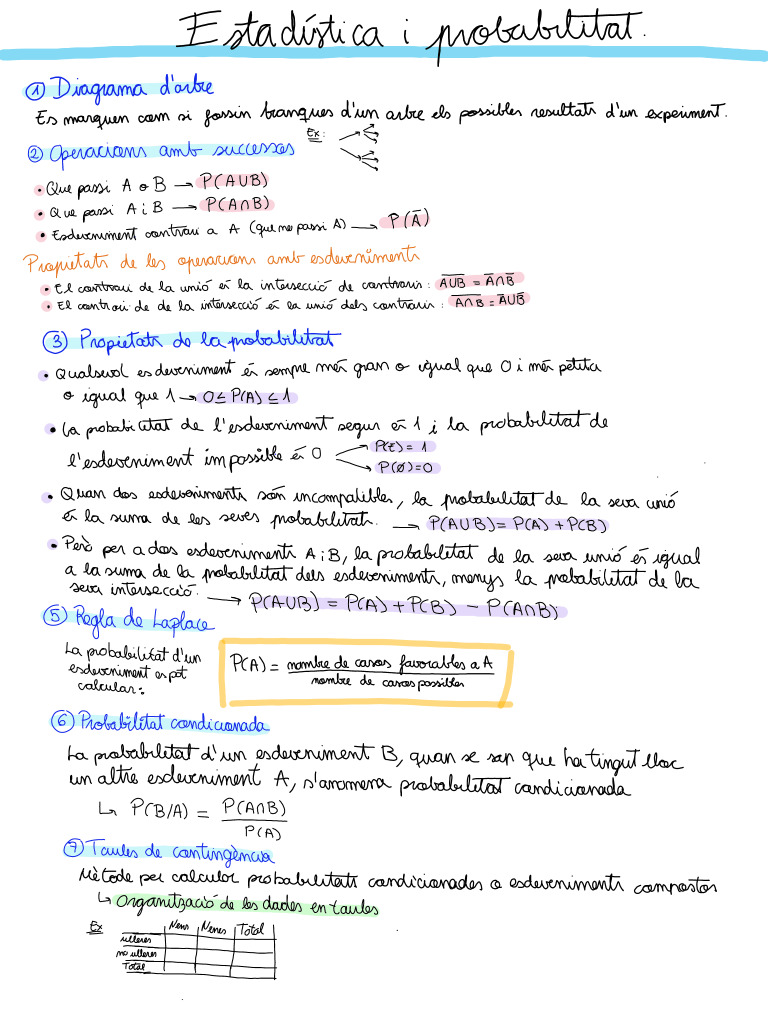 Estadística i probabilitat.
① Diagrama d'arbre
Es marquen com si fossin branques d'un arbre els possibles resultats d'un experiment.
Ex:
② Operacions amb successos
• Que passi A o B → P(A∪B)
• Que passi A i B → P(A∩B)
• Esdeveniment contrari a A (que no passi A) → P(A̅)
Propietats de les operacions amb esdeveniments
• El contrari de la unió és la intersecció de contraris: A̅∪̅B̅ = A̅∩B̅
• El contrari de de la intersecció és la unió dels contraris: A̅∩̅B̅ = A̅∪B̅
③ Propietats de la probabilitat
• Qualsevol esdeveniment és sempre més gran o igual que 0 i més petita
o igual que 1 → 0 ≤ P(A) ≤ 1
• La probabilitat de l'esdeveniment segur és 1 i la probabilitat de
l'esdeveniment impossible és 0
P(E) = 1
P(Ø) = 0
• Quan dos esdeveniments són incompatibles, la probabilitat de la seva unió
és la suma de les seves probabilitats. → P(A∪B) = P(A) + P(B)
• Però per a dos esdeveniments A i B, la probabilitat de la seva unió és igual
a la suma de la probabilitat dels esdeveniments, menys la probabilitat de la
seva intersecció. → P(A∪B) = P(A) + P(B) − P(A∩B)
⑤ Regla de Laplace
La probabilitat d'un
esdeveniment es pot
calcular:
P(A) = nombre de casos favorables a A
nombre de casos possibles
⑥ Probabilitat condicionada
La probabilitat d'un esdeveniment B, quan se sap que ha tingut lloc
un altre esdeveniment A, s'anomena probabilitat condicionada
↳ P(B/A) = P(A∩B)
P(A)
⑦ Taules de contingència
Mètode per calcular probabilitats condicionades o esdeveniments compostos
↳ Organització de les dades en taules
Ex
Nens Nenes Total
ulleres
no ulleres
Total